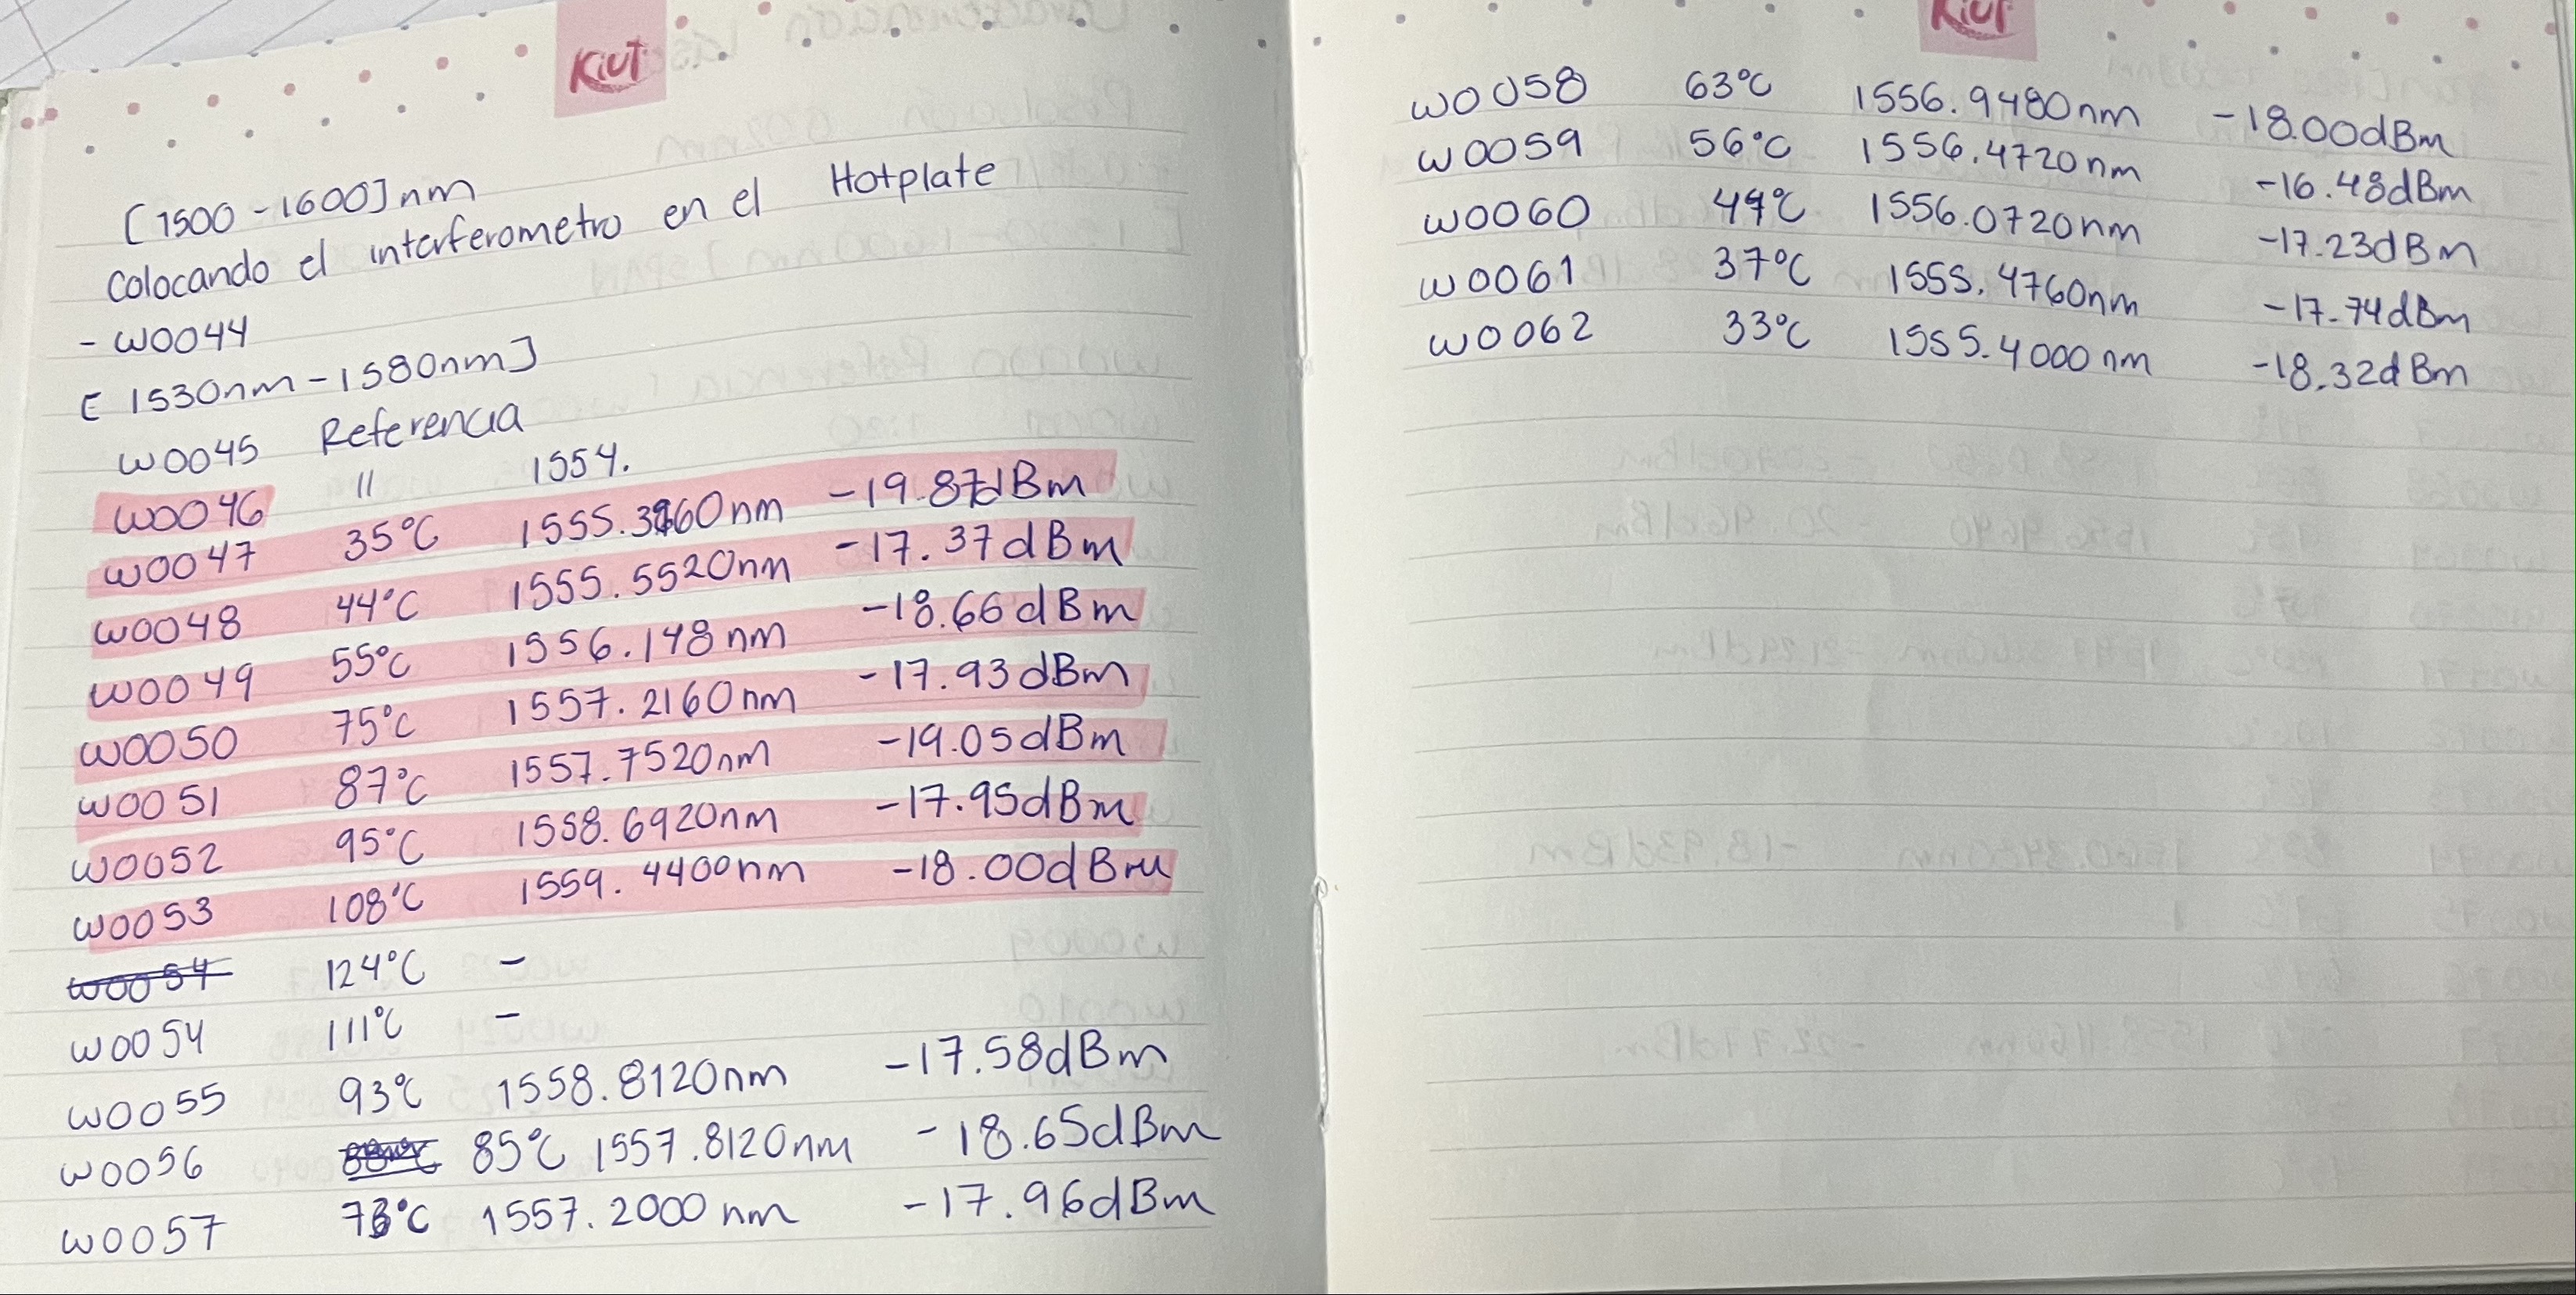 Kiut
[1500-1600]nm
Colocando el interferometro en el Hotplate
- W0044
[ 1530nm-1580nm]
W0045 Referencia
W0046 " 1554.
W0047 35°C 1555.3160nm -19.87dBm
W0048 44°C 1555.5520nm -17.37dBm
W0049 55°C 1556.148nm -18.66dBm
W0050 75°C 1557.2160nm -17.93dBm
W0051 87°C 1557.7520nm -19.05dBm
W0052 95°C 1558.6920nm -17.95dBm
W0053 108°C 1559.4400nm -18.00dBm
W0054 124°C -
W0054 111°C -
W0055 93°C 1558.8120nm -17.58dBm
W0056 85°C 1557.8120nm -18.65dBm
W0057 73°C 1557.2000nm -17.96dBm
Kiut
W0058 63°C 1556.9480nm -18.00dBm
W0059 56°C 1556.4720nm -16.48dBm
W0060 49°C 1556.0720nm -17.23dBm
W0061 37°C 1555.4760nm -17.74dBm
W0062 33°C 1555.4000nm -18.32dBm